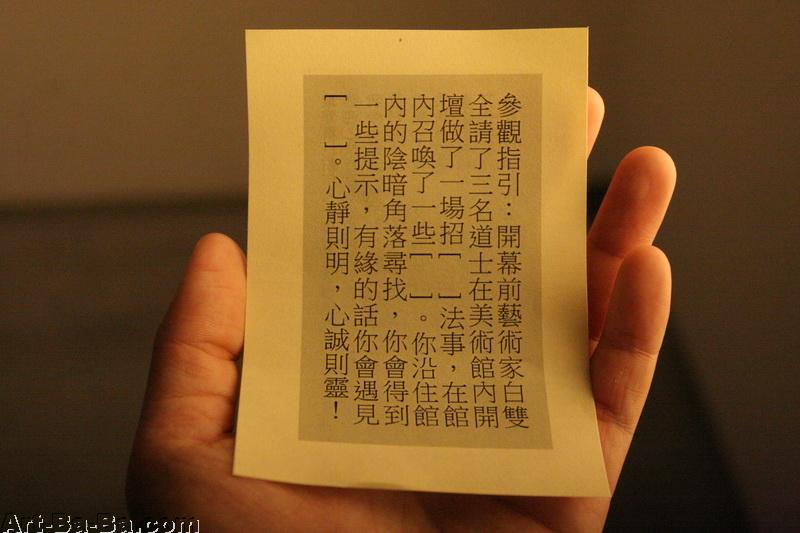 參觀指引：開幕前藝術家白雙
全請了三名道士在美術館內開
壇做了一場招[　]法事，在館
內召喚了一些[　]。你沿住館
內的陰暗角落尋找，你會得到
一些提示，有緣的話你會遇見
[　]。心靜則明，心誠則靈！
Art-Ba-Ba.com